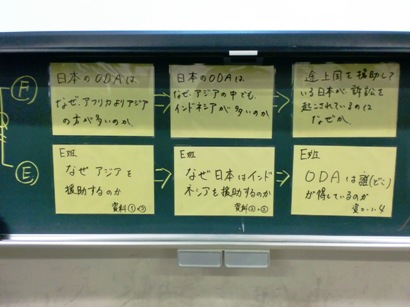 F
日本のODAは
なぜ、アフリカよりアジア
の方が多いのか。
日本のODAは
なぜ、アジアの中でも、
インドネシアが多いのか
途上国を援助して
いる日本が訴訟を
起こされているのは
なぜか。
E
E班
なぜ アジアを
援助するのか
資料
E班
なぜ 日本はインド
ネシアを援助するのか
資料
E班
ODAは誰(どこ)
が得しているのか